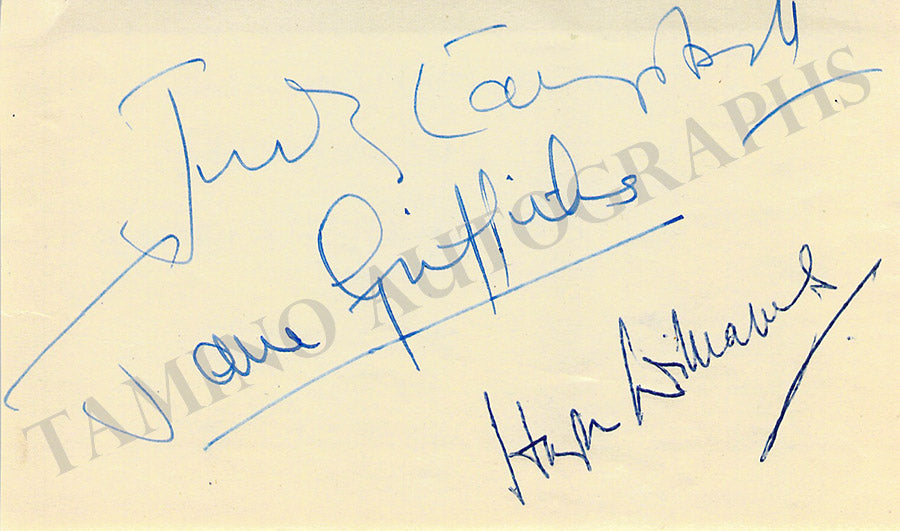 Judy Campbell
Jane Griffiths
Hugh Williams
TAMINO AUTOGRAPHS